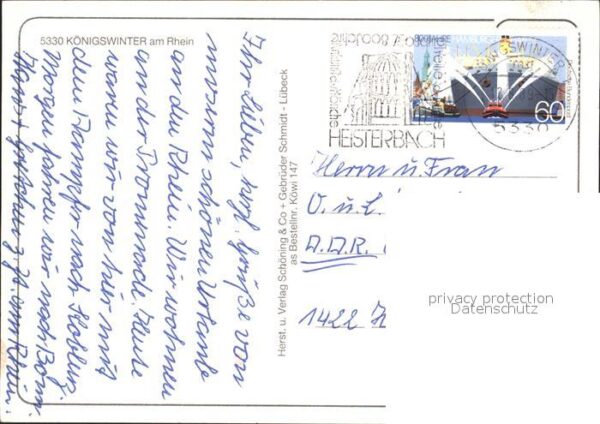 5330 KÖNIGSWINTER am Rhein
Ihr Lieben, herzl. Grüße von
unserem schönen Urlaub
an den Rhein. Wir wohnen
an der Promenade. Heute
waren wir von hier mit
dem Dampfer nach Koblenz.
Morgen fahren wir nach Bonn.
am Rhein.
Herst. u. Verlag Schöning & Co + Gebrüder Schmidt - Lübeck
as Bestellnr. Köwi 147
800 Jahre
HEISTERBACH
KÖNIGSWINTER
5330
60
Herrn u. Frau
O. u. L.
D.D.R.
1422 H
privacy protection
Datenschutz